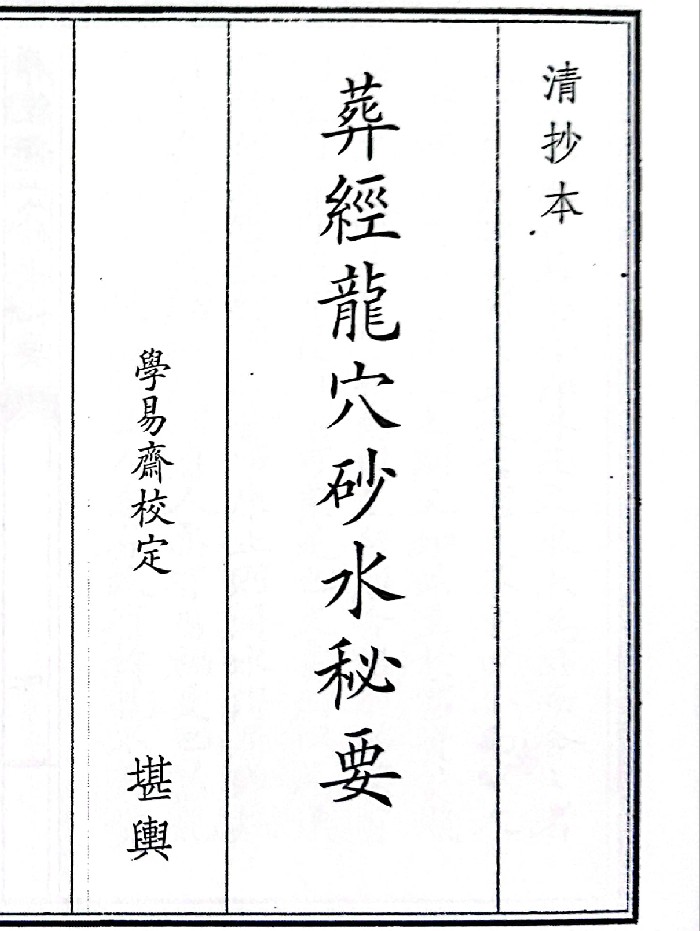 清抄本
葬經龍穴砂水秘要
學易齋校定
堪輿